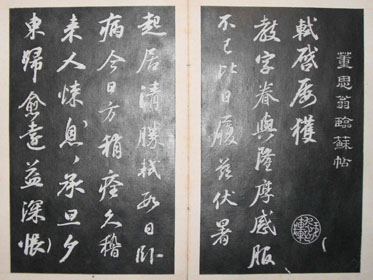 董思翁臨蘇帖
軾啓屢獲
教字眷與隆厚感服
不已比日履茲伏暑
起居清勝軾數日卧
病今日方稍痊久稽
來人悚息承旦夕
東歸愈遠益深悵